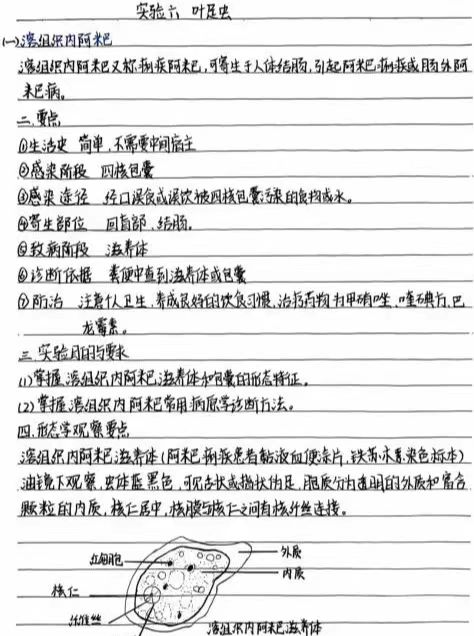 实验六 叶足虫
(一)溶组织内阿米巴
溶组织内阿米巴又称痢疾阿米巴,可寄生于人体结肠,引起阿米巴痢疾或肠外阿
米巴病。
二.要点
①生活史 简单,不需要中间宿主
②感染阶段 四核包囊
③感染途径 经口误食或误饮被四核包囊污染的食物或水。
④寄生部位 回盲部、结肠。
⑤致病阶段 滋养体
⑥诊断依据 粪便中查到滋养体或包囊
⑦防治 注意个人卫生、养成良好的饮食习惯,治疗药物为甲硝唑、喹碘方、巴
龙霉素。
三.实验目的与要求
(1)掌握溶组织内阿米巴滋养体和包囊的形态特征。
(2)掌握溶组织内阿米巴常用病原学诊断方法。
四.形态学观察要点
溶组织内阿米巴滋养体(阿米巴痢疾患者黏液血便涂片,铁苏木素染色标本)
油镜下观察,虫体蓝黑色,可见舌状或指状伪足,胞质分为透明的外质和富含
颗粒的内质,核仁居中,核膜与核仁之间有核纤丝连接。
红细胞
外质
内质
核仁
核纤丝
溶组织内阿米巴滋养体